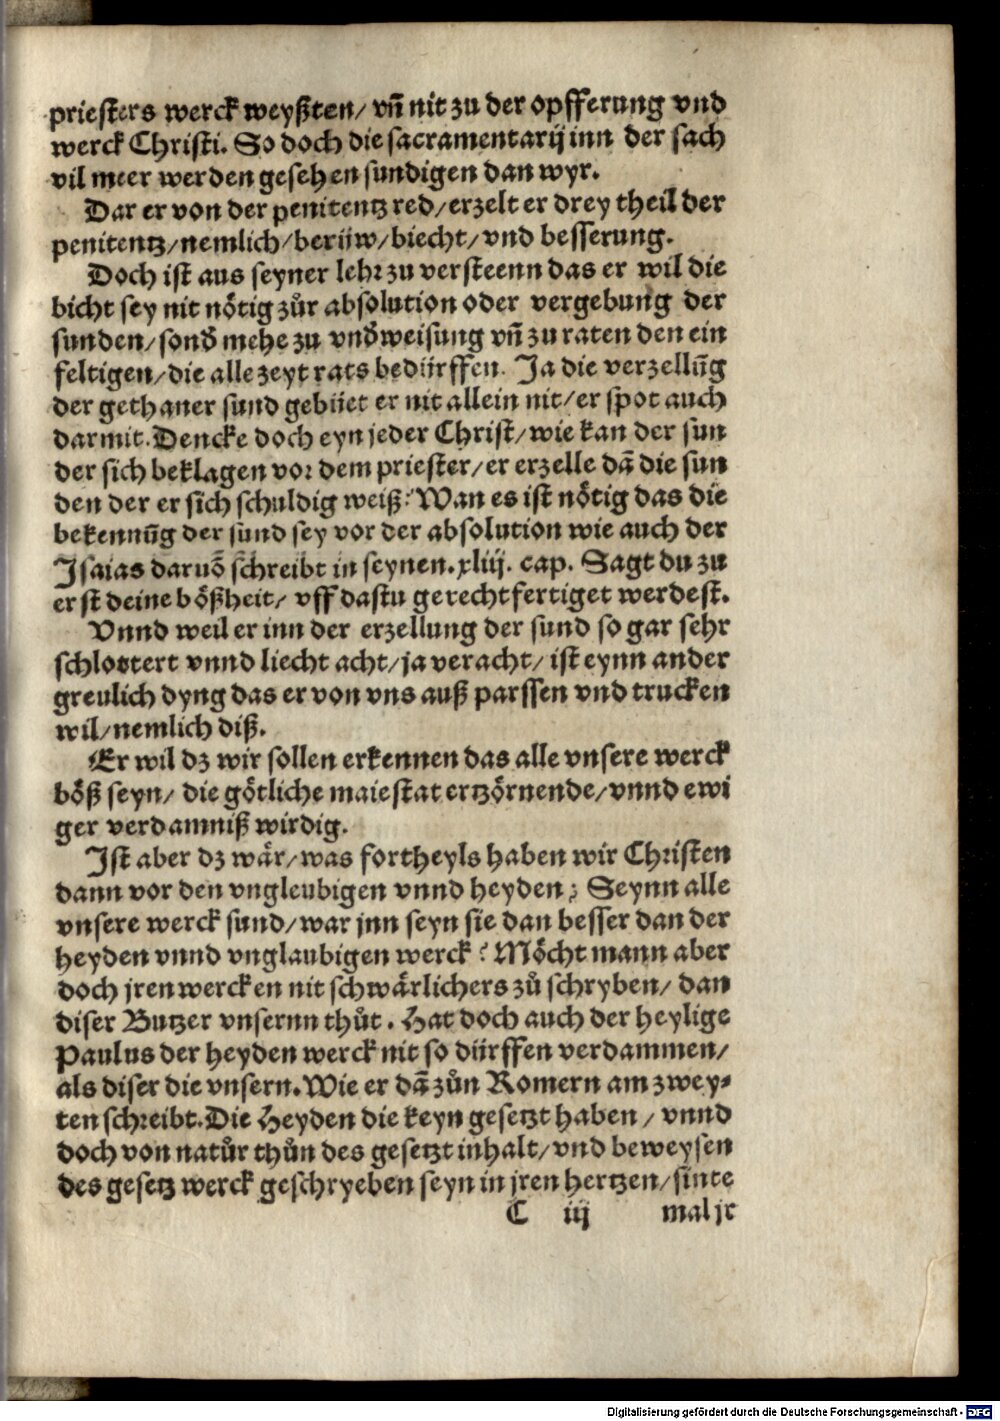 priesters werck weyßten/ vñ nit zu der opfferung vnd
werck Christi. So doch die sacramentarij inn der sach
vil meer werden gesehen sundigen dan wyr.
Dar er von der penitentz red/ erzelt er drey theil der
penitentz/ nemlich/ berüw/ biecht/ vnd besserung.
Doch ist aus seyner lehr zu versteenn das er wil die
bicht sey nit nötig zůr absolution oder vergebung der
sunden/ sonď mehe zu vnďweisung vñ zu raten den ein
feltigen/ die alle zeyt rats bedürffen. Ja die verzellūg
der gethaner sund gebüet er nit allein nit/ er spot auch
darmit. Dencke doch eyn jeder Christ/ wie kan der sun
der sich beklagen vor dem priester/ er erzelle dā die sun
den der er sich schuldig weiß? Wan es ist nötig das die
bekennūg der sund sey vor der absolution wie auch der
Isaias daruō schreibt in seynen. xliij. cap. Sagt du zu
erst deine bößheit/ vff dastu gerechtfertiget werdest.
Vnnd weil er inn der erzellung der sund so gar sehr
schlottert vnnd liecht acht/ ja veracht/ ist eynn ander
greulich dyng das er von vns auß parssen vnd trucken
wil/ nemlich diß.
Er wil dz wir sollen erkennen das alle vnsere werck
böß seyn/ die götliche maiestat ertzörnende/ vnnd ewi
ger verdamniß wirdig.
Ist aber dz wär/ was fortheyls haben wir Christen
dann vor den vngleubigen vnnd heyden? Seynn alle
vnsere werck sund/ war jnn seyn sie dan besser dan der
heyden vnnd vnglaubigen werck? Möcht mann aber
doch jren wercken nit schwärlichers zů schryben/ dan
diser Butzer vnsernn thůt. Hat doch auch der heylige
Paulus der heyden werck nit so dürffen verdammen/
als diser die vnsern. Wie er dā zůn Romern am zwey-
ten schreibt. Die Heyden die keyn gesetzt haben/ vnnd
doch von natůr thůn des gesetzt inhalt/ vnd beweysen
des gesetz werck geschryeben seyn in jren hertzen/ sinte
C iij mal jr
Digitalisierung gefördert durch die Deutsche Forschungsgemeinschaft - DFG